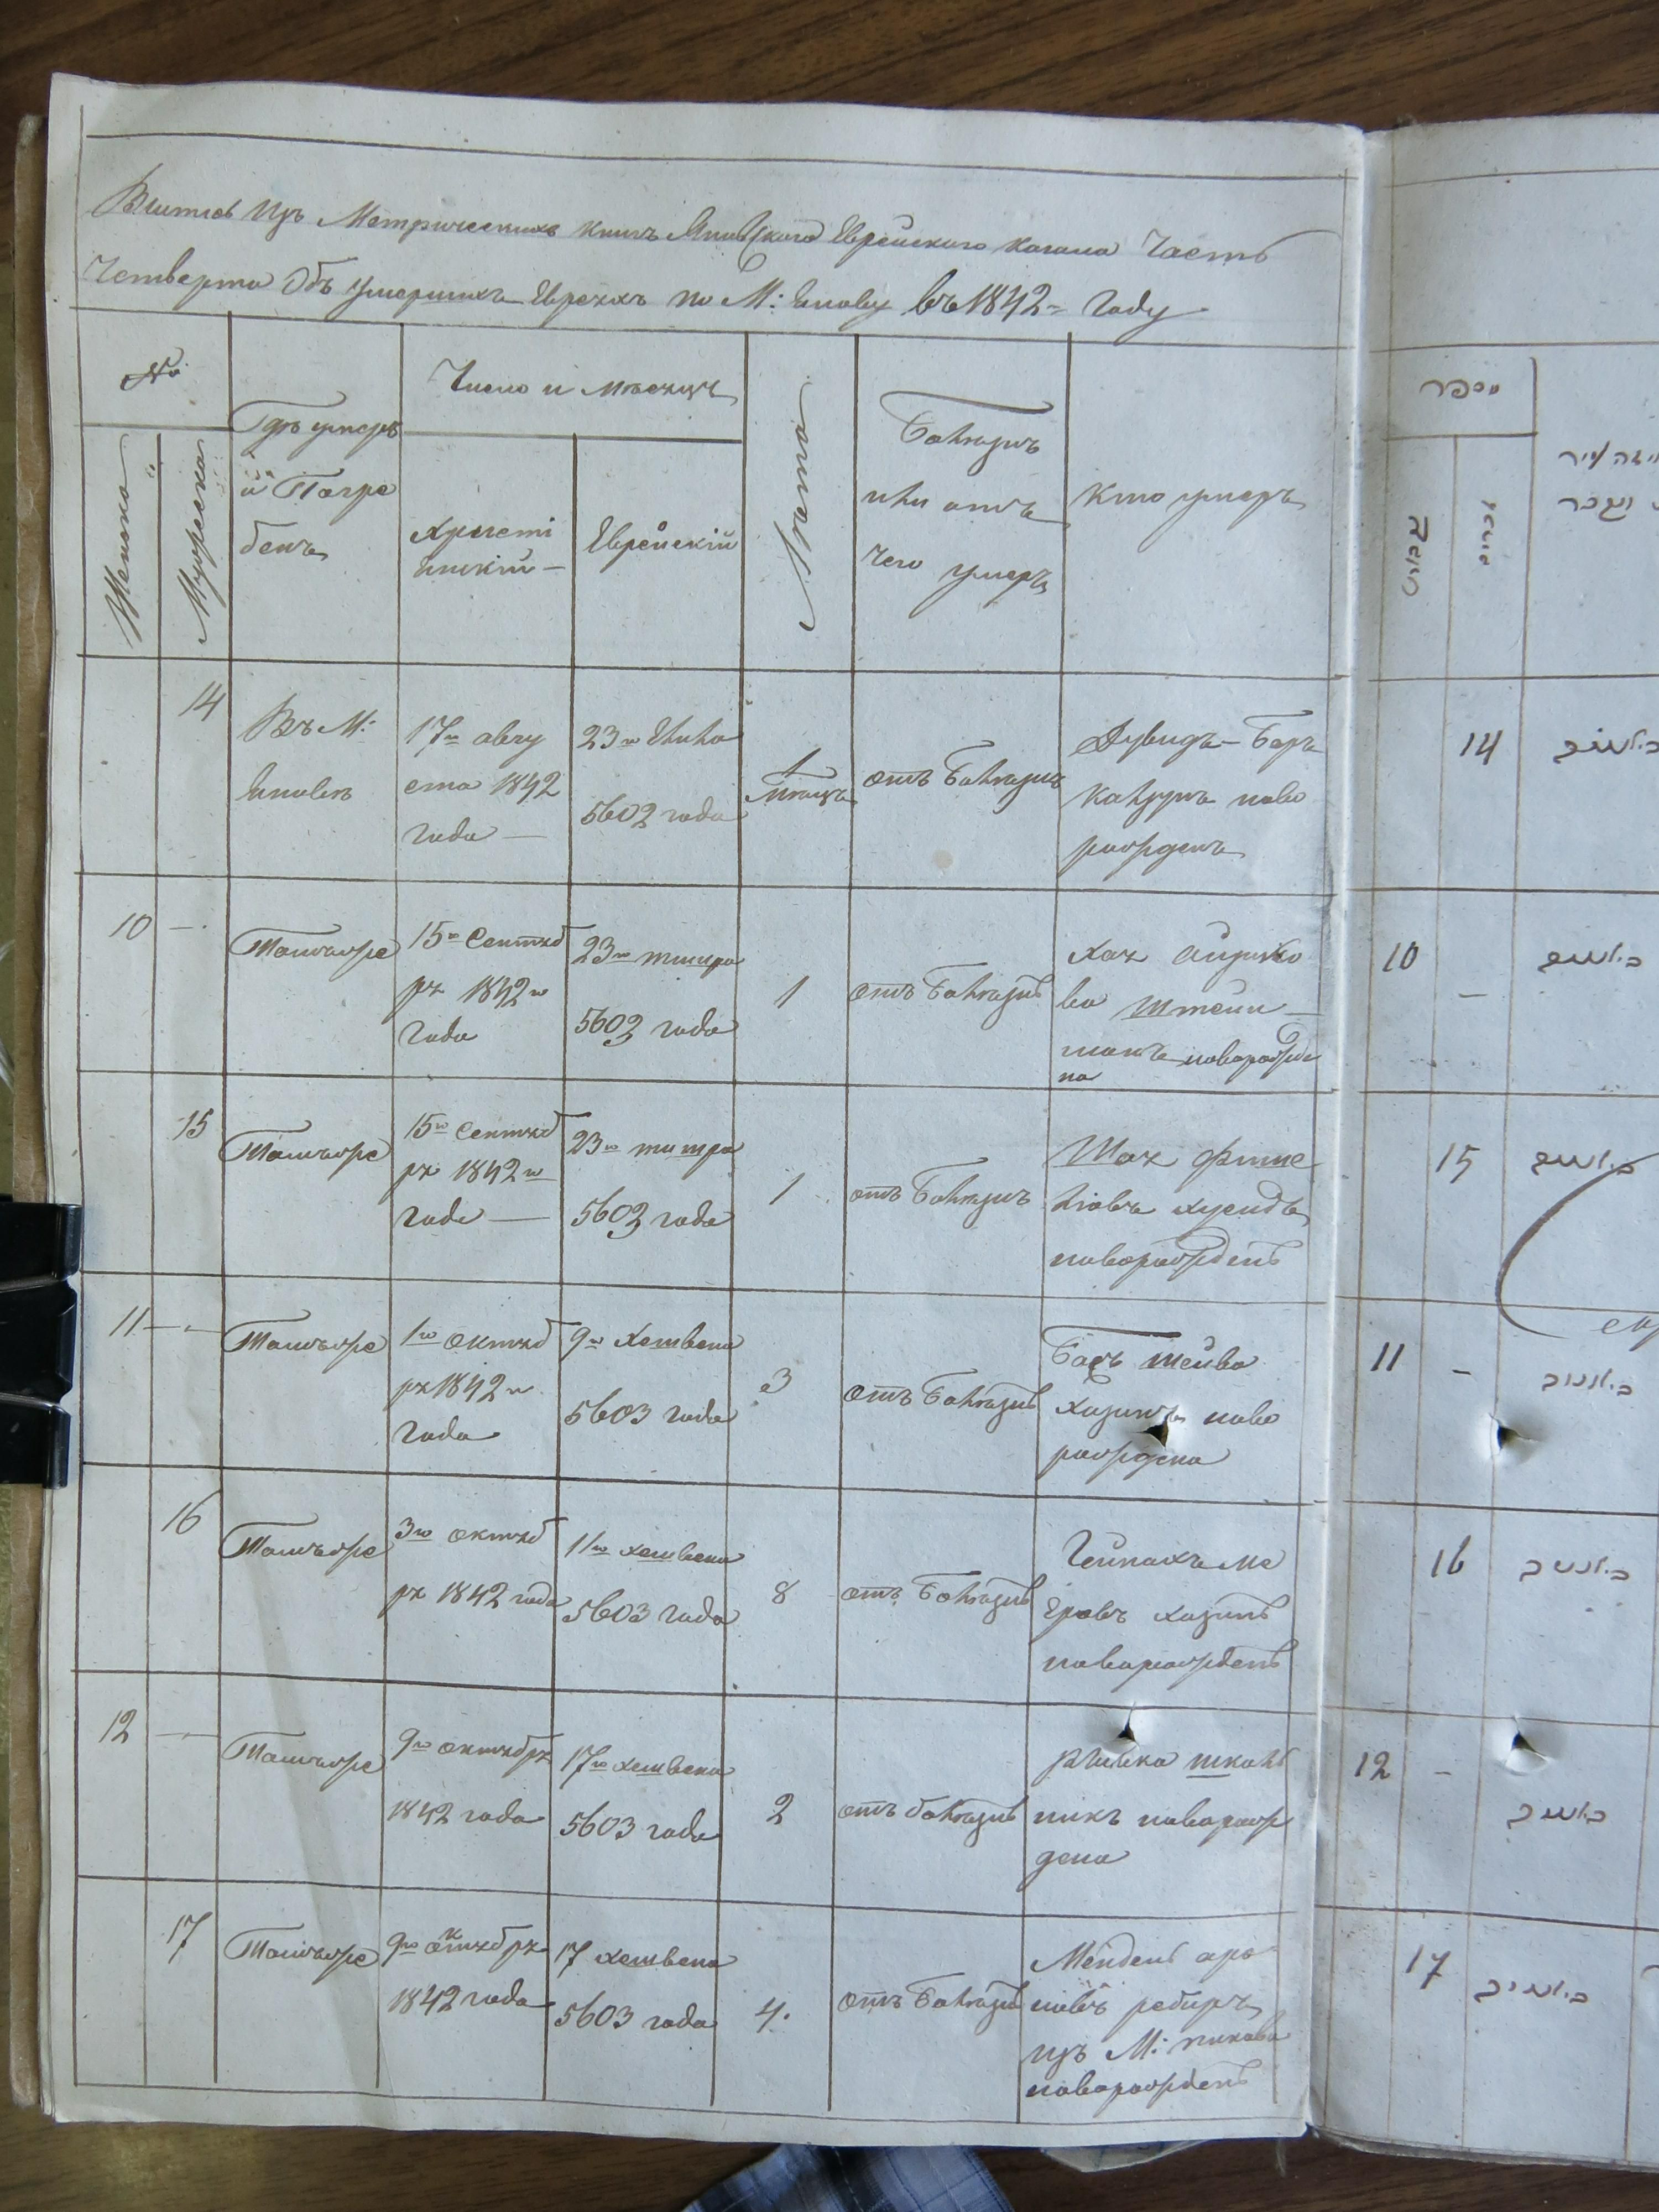 Выпись Изъ Метрическихъ книгъ Яновского Еврейского кагала Часть
Четверта Объ умершихъ Евреяхъ по М: Янову въ 1842 году
№
Женска
Мужеска
Где умеръ
и Погре
бенъ
Число и месяцъ
Христі
янскій
Еврейскій
Лета
Болезнь
или отъ
чего умеръ
Кто умеръ
14
Въ М:
Янове
17го авгу
ста 1842
года
23го Элила
5602 года
1
месяцъ
отъ Болезни
Дувидъ Беръ
ново
рожденъ
10
Тамъ же
15го Сентяб
ря 1842го
года
23го тишра
5603 года
1
отъ Болезни
Хая
ва Штейн
манъ новорожде
на
15
Тамъ же
15го Сентяб
ря 1842го
года
23го тишра
5603 года
1
отъ Болезнъ
Шая Фише
лювъ
новорожденъ
11
Тамъ же
1го октяб
ря 1842го
года
9го Хешвена
5603 года
3
отъ Болезни
Бась Шейва
Хазинъ ново
рождена
16
Тамъ же
3го октяб
ря 1842 года
11го хешвена
5603 года
8
отъ Болезни
Гейнахъ Ме
еровъ хазинъ
новорожденъ
12
Тамъ же
9го октября
1842 года
17го хешвена
5603 года
2
отъ болезни
Рывка школь
никъ новорож
дена
17
Тамъ же
9го октября
1842 года
17 хешвена
5603 года
4.
отъ Болезни
Мендель аро
новъ
изъ М: пикова
новорожденъ
מספר
14
10
15
11
16
12
17